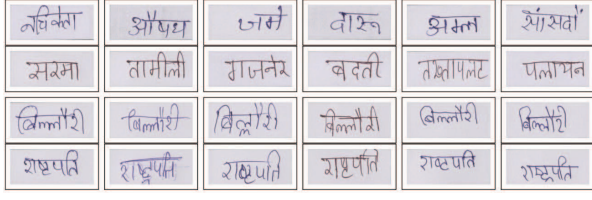 नचिकेता औषध जमे दारू अम्ल सांसदों
सरमा तामीली गजनेर बदती तख्तापलट पलायन
बिल्लौरी बिल्लौरी बिल्लौरी बिल्लौरी बिल्लौरी बिल्लौरी
राष्टपति राष्ट्रपति राष्टपति राष्टपति राष्टपति राष्ट्रपति